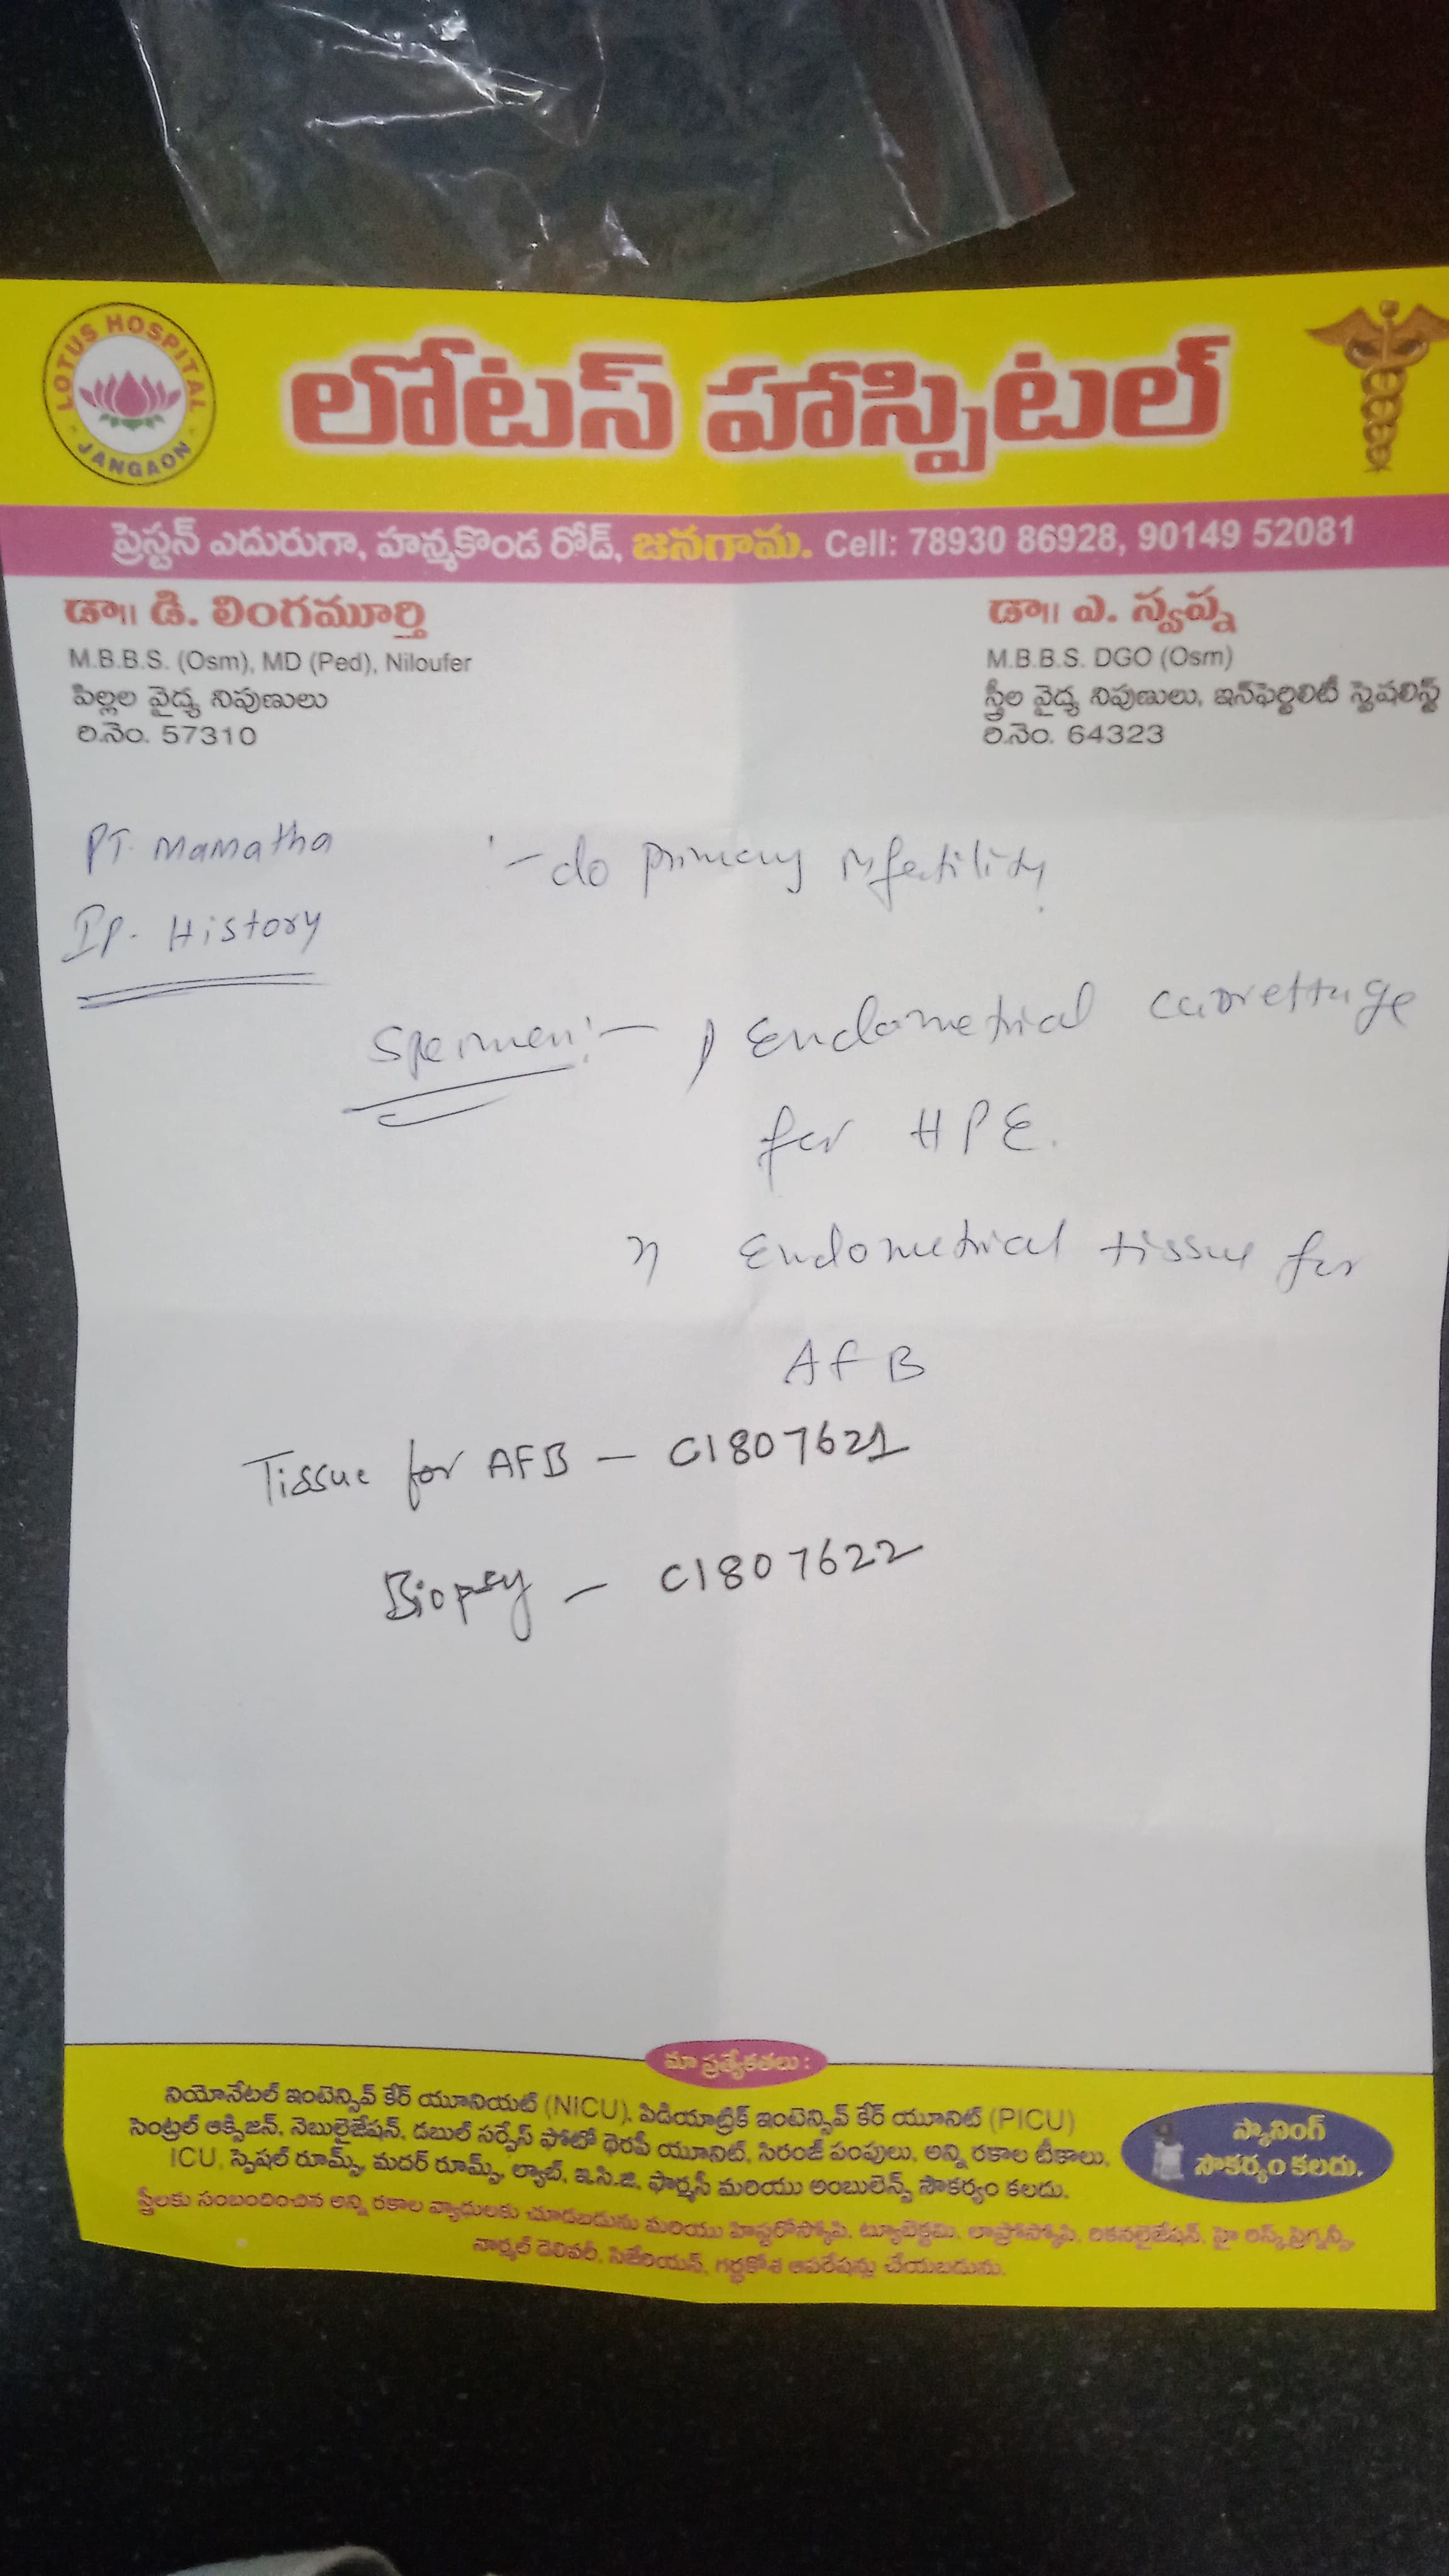 LOTUS HOSPITAL
JANGAON
లోటస్ హాస్పిటల్
ప్రెస్టన్ ఎదురుగా, హన్మకొండ రోడ్, జనగామ. Cell: 78930 86928, 90149 52081
డా|| డి. లింగమూర్తి
M.B.B.S. (Osm), MD (Ped), Niloufer
పిల్లల వైద్య నిపుణులు
రి.నెం. 57310
డా|| ఎ. స్వప్న
M.B.B.S. DGO (Osm)
స్త్రీల వైద్య నిపుణులు, ఇన్‌ఫెర్టిలిటీ స్పెషలిస్ట్
రి.నెం. 64323
PT. Mamatha
:- c/o primary infertility
IP. History
Specimen:- 1) Endometrial currettuge
for HPE.
2) Endometrial tissue for
AFB
Tissue for AFB - C1807621
Biopsy - C1807622
మా ప్రత్యేకతలు :
నియోనేటల్ ఇంటెన్సివ్ కేర్ యూనియట్ (NICU), పిడియాట్రిక్ ఇంటెన్సివ్ కేర్ యూనిట్ (PICU)
సెంట్రల్ ఆక్సిజన్, నెబులైజేషన్, డబుల్ సర్ఫేస్ ఫోటో థెరపీ యూనిట్, సిరంజ్ పంపులు, అన్ని రకాల టీకాలు,
ICU, స్పెషల్ రూమ్స్, మదర్ రూమ్స్, ల్యాబ్, ఇ.సి.జి, ఫార్మసీ మరియు అంబులెన్స్ సౌకర్యం కలదు.
స్త్రీలకు సంబందించిన అన్ని రకాల వ్యాదులకు చూడబడును మరియు హిస్టరోస్కోపి, ట్యూబెక్టమి, లాప్రోస్కోపి, రికనలైజేషన్, హై రిస్క్ ప్రెగ్నెన్సీ,
నార్మల్ డెలివరీ, సిజేరియన్, గర్భకోశ ఆపరేషన్లు చేయబడును.
స్కానింగ్
సౌకర్యం కలదు.